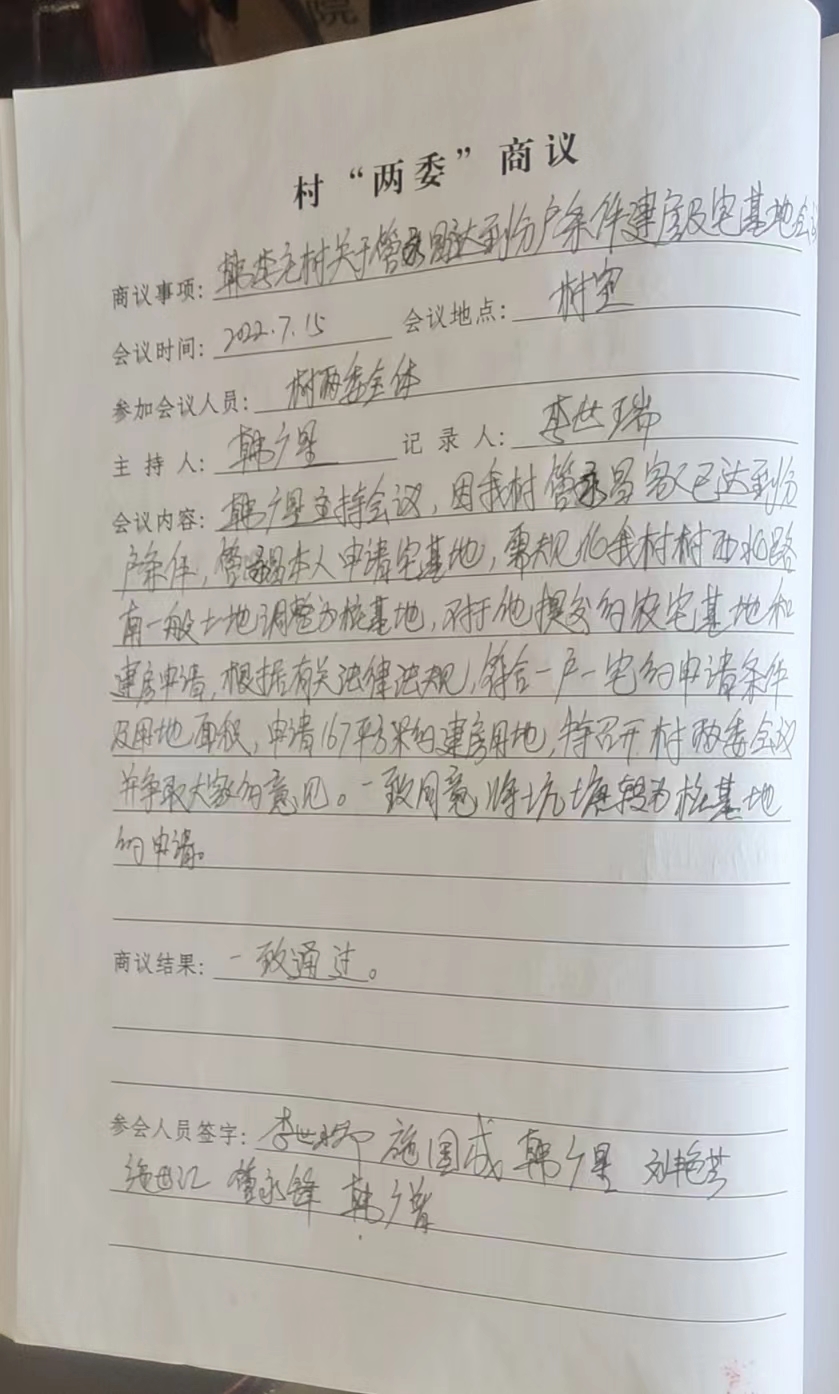 院
村“两委”商议
商议事项：韩李宅村关于管永昌达到份户条件建房及宅基地会议
会议时间：2022.7.15 会议地点：村室
参加会议人员：村两委全体
主持人：韩广星 记录人：李世瑞
会议内容：韩广星主持会议，因我村管永昌已达到份
户条件，管永昌本人申请宅基地，需规化我村村西水路
南一般土地调整为桩基地，对于他提交的农宅基地和
建房申请，根据有关法律法规，符合一户一宅的申请条件
及用地面积，申请167平方米的建房用地，特召开村两委会议
并争取大家的意见。一致同意将坑塘转为桩基地
的申请。
商议结果：一致通过。
参会人员签字：李世瑞 施国成 韩广星 刘艳芳
施世江 管永锋 韩广普